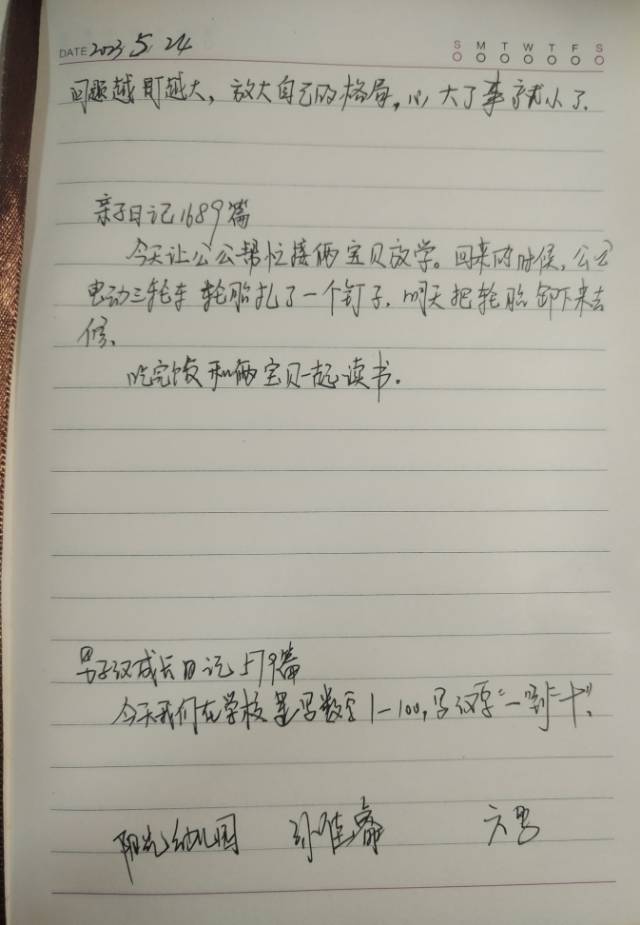 DATE 2023 5. 24
S M T W T F S
问题越盯越大，放大自己的格局，心大了事就小了.
亲子日记1689篇
今天让公公帮忙接俩宝贝放学。回来的时候，公公
电动三轮车轮胎扎了一个钉子.明天把轮胎卸下来去
修.
吃完饭和俩宝贝一起读书.
男子汉成长日记579篇
今天我们在学校是写数字1-100,写汉字"一"到"十".
阳光幼儿园 孙佳睿